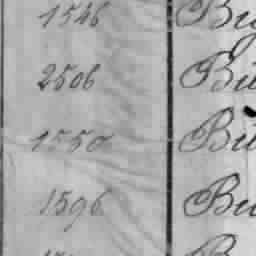 1546 Bu
2506 Bu
1550 Bu
1596 Bu